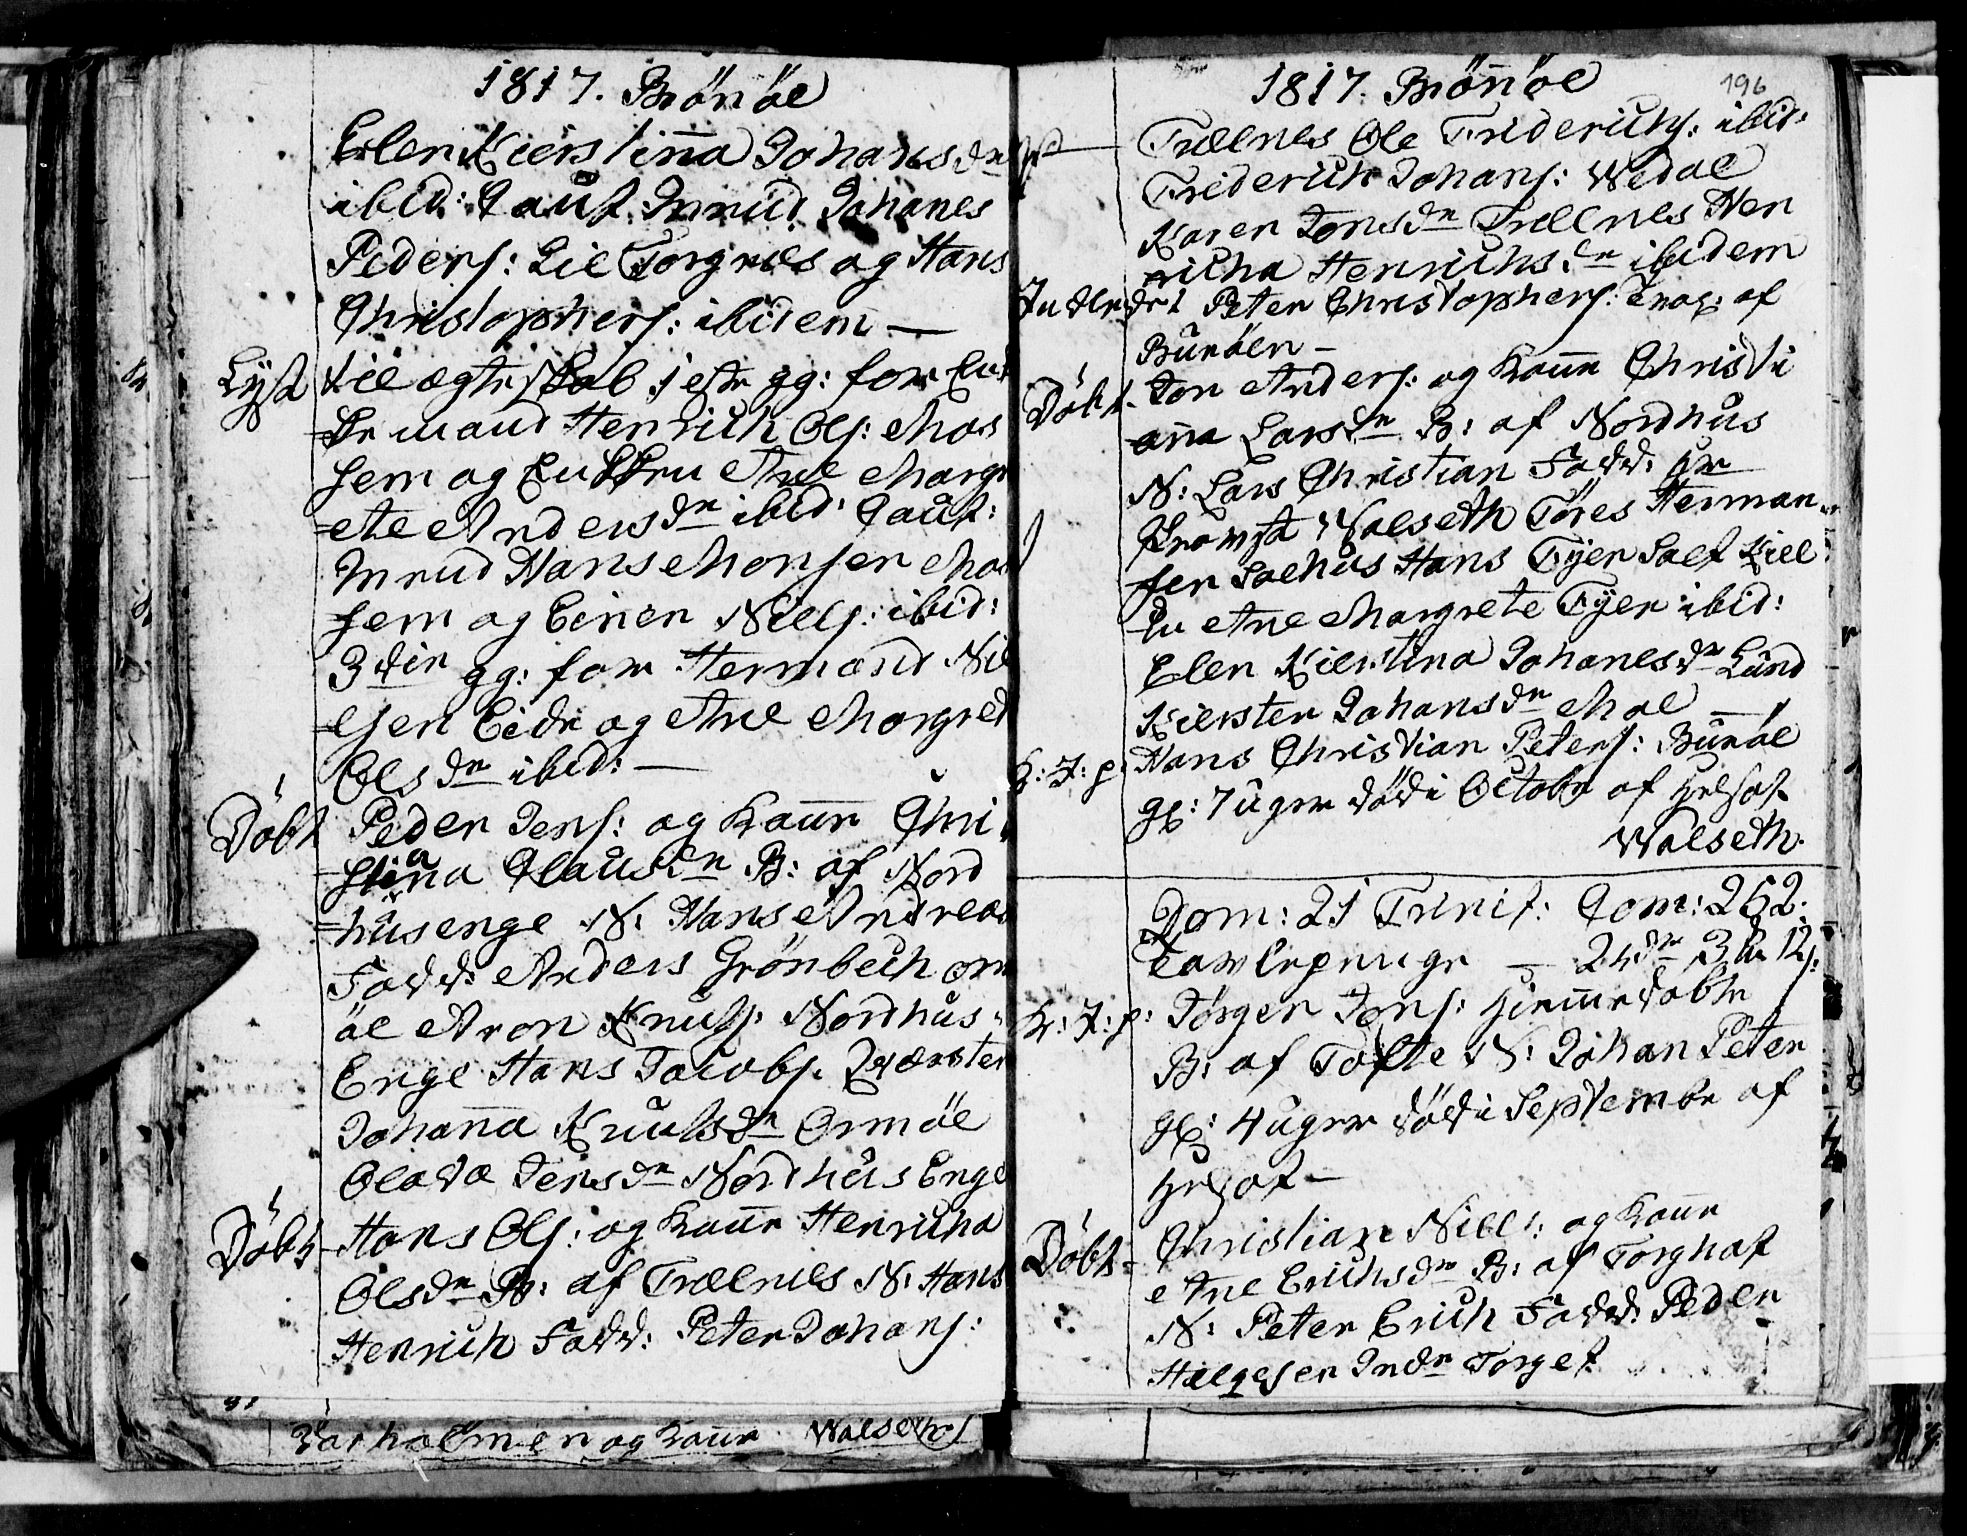 1817. Brönöe
Elen Kierstina Johansdr
ibid: Caut. Inrud Johanes
Peders: Lie Torgnes og Hans
Christophers: ibidem —
Lyst til ægteskab 1ste gg: for
mand Henrich Ols: Mos
hem og Ane Margr
ete Andersdr ibid: Caut:
Inrud Hans Monsen Mos
hem og Einer Niels: ibid:
3die gg: for Hermand Ni
elsen Eide og Ane Margret
Olsdr ibid: —
Döbt Peder Jens: og Kone Chri
stina Clausdr B: af Nord
husenge N: Hans Andreas
Fadd: Anders Grönbech Orm
öe Aron Knuts: Nordhus
Enge Hans Jacobs:
Johanna Knutsdr Ormöe
Olava Jensdr Nordhus Enge
Döbt Hans Ols: og Kone Henricha
Olsdr B: af Trælnes N: Hans
Henrich Fadd: Peter Johans:
holmen og Kone Walseth
196
1817. Brönöe
Trælnes Ole Friderichs: ibid:
Friderich Johans: Wedal
Karen Jonsdr Trælnes Hen
richa Henrichsdr ibidem
Introd: Peter Christophers: af
Buröen —
Döbt Jon Anders: og Kone Christi
ana Larsdr B: af Nordhus
N: Lars Christian Fadd: Hr
Provst Walseth Töres Herman
sen Salhus Hans Tyen Self
Ane Margrete Tyen ibid:
Elen Kierstina Johanesdr Lund
Kiersten Johansdr Moe —
J: p: Hans Christian Peters: Buröe
gl: 7 uger död i Octobr af
Walseth.
Dom: 21 Trinit: Com: 262.
Tavlepenge — 2 3 12 s:
J: p: Jörgen Jens: Hiemmedöbte
B: af Tofte N: Johan Peter
gl: 4 uger död i Septembr af
Döbt Christian Niels: og Kone
Ane Erichsdr B: af Torghat
N: Peter Erich Fadd: Peder
Helgesen Indr Torget